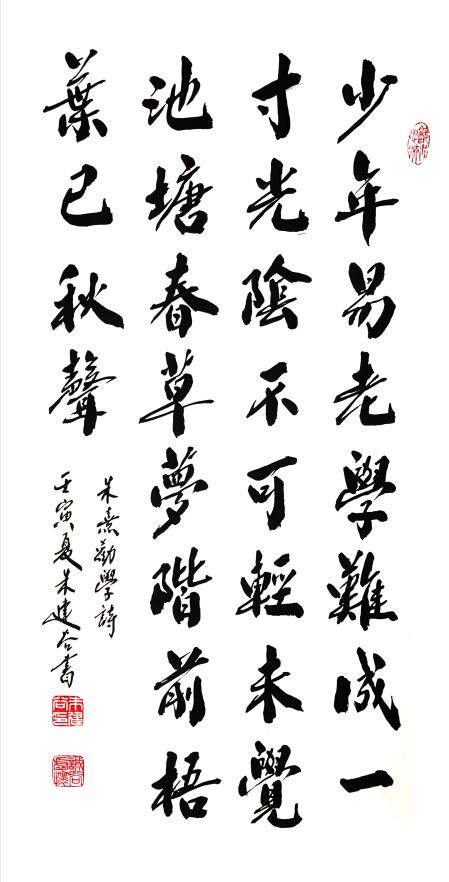 少年易老學難成一
寸光陰不可輕未覺
池塘春草夢階前梧
葉已秋聲
朱熹勸學詩
壬寅夏朱建谷書